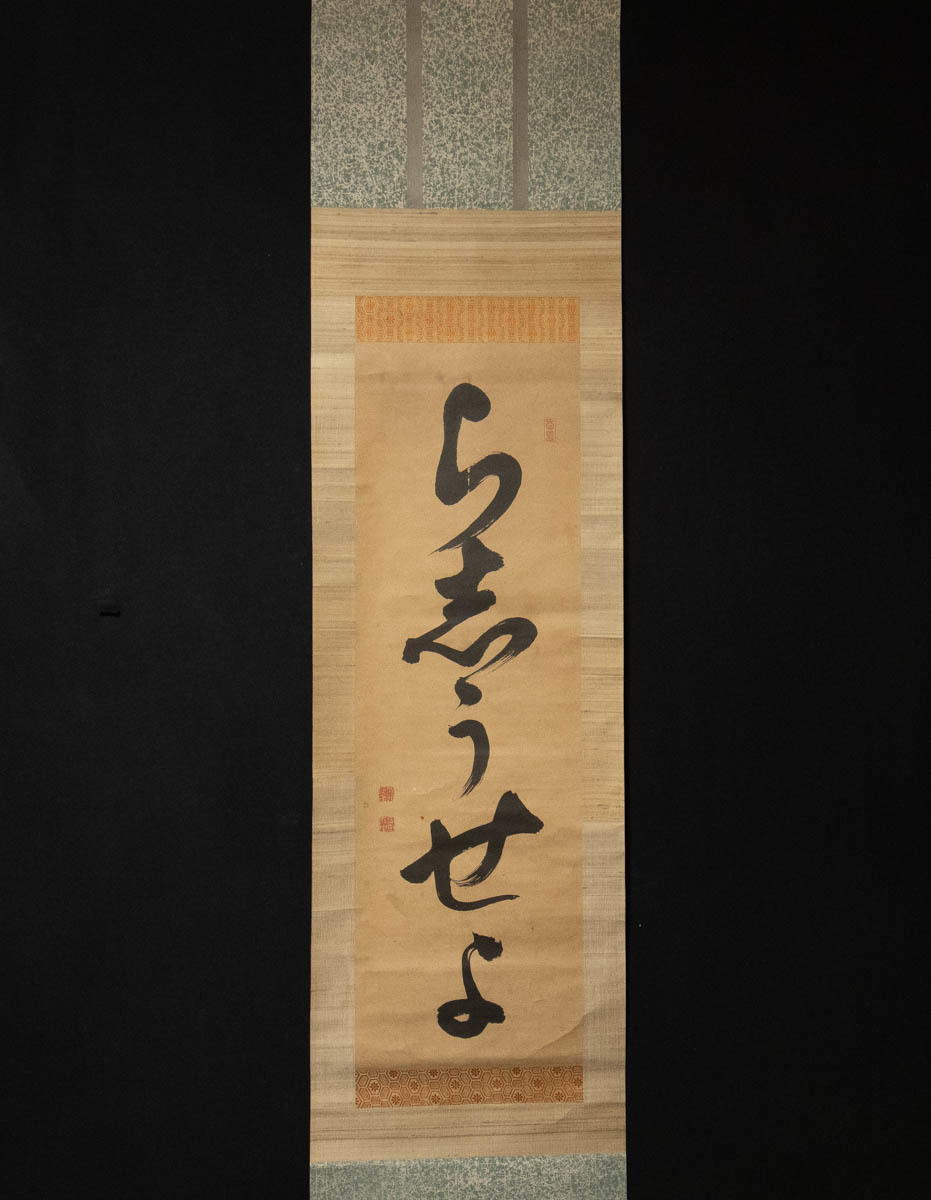 ら志うせよ